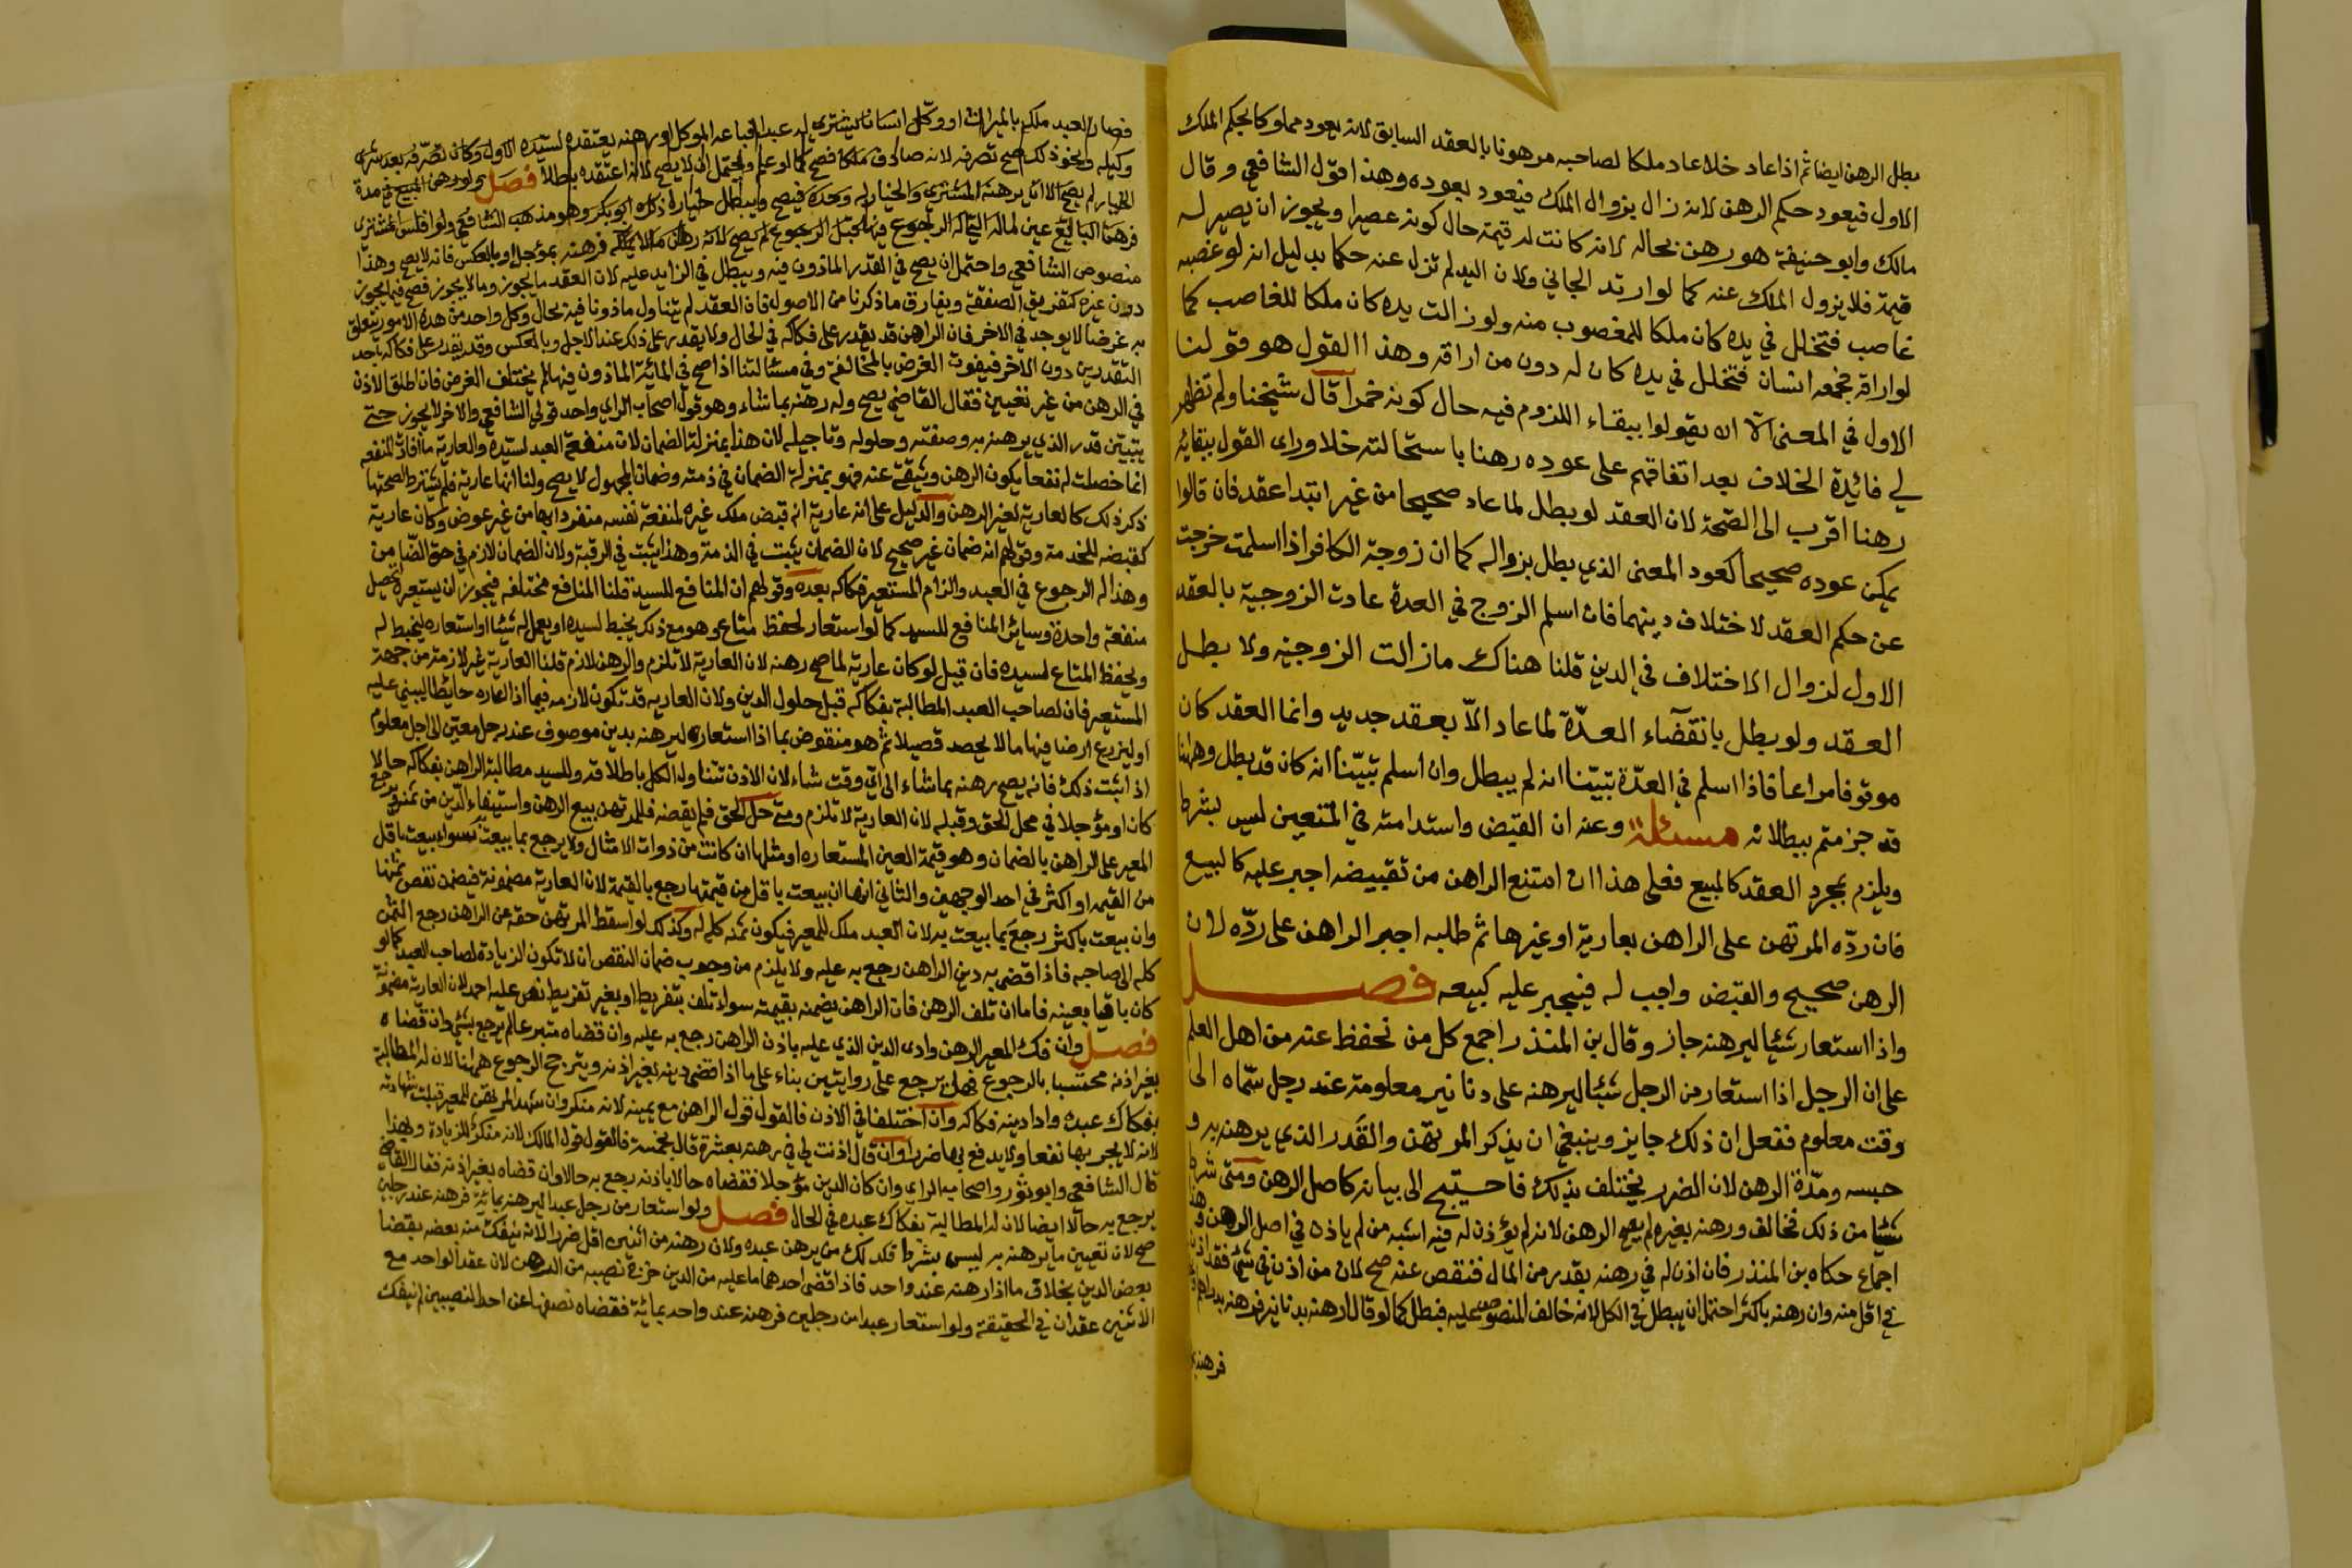 بطل الرهن ايضا ثم اذا عاد خلا عاد ملكا لصاحبه مرهونا بالعقد السابق لانه يعود مملوكا بحكم الملك
الاول فيعود حكم الرهن لانه زال بزوال الملك فيعود بعوده وهذا قول الشافعي وقال
مالك وابو حنيفة هو رهن بحاله لانه كانت له قيمة حال كونه عصيرا ويجوز ان يصير له
قيمة فلا يزول الملك عنه كما لو ارتد الجاني ولان اليد لم تزل عنه حكما بدليل انه لو غصبه
غاصب فتخلل في يده كان ملكا للمغصوب منه ولو زالت يده كان ملكا للغاصب كما
لو اراقه فجمعه انسان فتخلل في يده كان له دون من اراقه وهذا القول هو قولنا
الاول في المعنى الا ان يقولوا ببقاء اللزوم فيه حال كونه خمرا قال شيخنا ولم تظهر
لي فائدة الخلاف بعد اتفاقهم على عوده رهنا باستحالته خلا وراى القول ببقائه
رهنا اقرب الى الصحة لان العقد لو بطل لما عاد صحيحا من غير ابتدا عقد فان قالوا
يمكن عوده صحيحا كعود المعنى الذي بطل بزواله كما ان زوجة الكافر اذا اسلمت خرجت
عن حكم العقد لاختلاف دينهما فان اسلم الزوج في العدة عادت الزوجية بالعقد
الاول لزوال الاختلاف في الدين قلنا هناك ما زالت الزوجية ولا بطل
العقد ولو بطل بانقضآء العدّة لما عاد الاّ بعقد جديد وانما العقد كان
موقوفا مراعا فاذا اسلم في العدّة تبيّنا انه لم يبطل وان اسلم تبيّنا انه كان قد بطل وهاهنا
قد جزمتم ببطلانه مسئلة وعنه ان القبض واستدامته في المتعين ليس بشرط
ويلزم بمجرد العقد كالمبيع فعلى هذا ان امتنع الراهن من تقبيضه اجبر عليه كالبيع
فان ردّه المرتهن على الراهن بعارية او غيرها ثم طلبه اجبر الراهن على ردّه لان
الرهن صحيح والقبض واجب له فيجبر عليه كبيعه فصل
واذا استعار شيئا ليرهنه جاز وقال بن المنذر اجمع كل من نحفظ عنه من اهل العلم
على ان الرجل اذا استعار من الرجل شيئا ليرهنه على دنانير معلومة عند رجل سمّاه الى
وقت معلوم ففعل ان ذلك جايز وينبغي ان يذكر المرتهن والقدر الذي يرهنه به و
حبسه ومدّة الرهن لان الضرر يختلف بذلك فاحتيج الى بيانه كاصل الرهن ومتى شرط
شيئا من ذلك فخالف ورهنه بغيره لم يصح الرهن لانه لم يؤذن له فيه اشبه من لم ياذن في اصل الرهن وهذا
اجماع حكاه بن المنذر فان اذن له في رهنه بقدر من المال فنقص عنه صح لان من اذن في شئ فقد اذن
في اقل منه وان رهنه باكثر احتمل ان يبطل في الكل لانه خالف المنصوص عليه فبطل كما لو قال ارهنه بدنانير فرهنه بدراهم
فرهنه
فصار العبد ملكه بالميراث او وكّل انسانا يشتري له عبدا فباعه الموكل او رهنه يعتقده لسيده الاول وكان تصرفه بعد شرى
وكيله ونحو ذلك صح تصرفه لانه صادف ملكا فصح كما لو علم ويحتمل ان لا يصح لانه اعتقده باطلا فصل ولو رهن المبيع في مدة
الخيار لم يصح الا ان يرهنه المشتري والخيار له وحده فيصح ويبطل خياره ذكره ابو بكر وهو مذهب الشافعي ولو افلس المشتري
فرهن البائع عين ماله التي له الرجوع فيها قبل الرجوع لم يصح لانه رهن ما لا يملكه فرهنه بمؤجل او بالعكس فانه لا يصح وهذا
منصوص الشافعي واحتمل ان يصح في القدر الماذون فيه ويبطل في الزايد عليه لان العقد ما يجوز وما لا يجوز فصح فيما يجوز
دون غيره كتفريق الصفقة ويفارق ما ذكرنا من الاصول فان العقد لم يتناول ماذونا فيه بحال وكل واحد من هذه الامور يتعلق
به غرض لا يوجد في الاخر فان الراهن قد يقدر على فكاكه في الحال ولا يقدر على ذلك عند الاجل وبالعكس وقد يقدر على فكاكه باحد
النقدين دون الاخر فيفوت الغرض بالمخالفة وفي مسئالتنا اذا صح في المائة الماذون فيها لم يختلف الغرض فان اطلق الاذن
في الرهن من غير تعيين فقال القاضي يصح وله رهنه بما شاء وهو قول اصحاب الراي واحد قولي الشافعي والاخر لا يجوز حتى
يتبيّن قدر الذي يرهنه به وصفته وحلوله وتاجيله لان هذا بمنزلة الضمان لان منفعة العبد لسيده والعارية ما افادت المنفعه
انما حصلت له نفعا يكون الرهن وثيقة عنه فهو بمنزلة الضمان في ذمته وضمان المجهول لا يصح ولنا انها عارية فلم يشترط لصحتها
ذكر ذلك كالعارية لغير الرهن والدليل على انه عارية انه قبض ملك غيره لمنفعة نفسه منفردا بها من غير عوض وكان عارية
كقبضه للخدمة وقولهم انه ضمان غير صحيح لان الضمان يثبت في الذمة وهذا يثبت في الرقبة ولان الضمان لازم في حق الضامن
وهذا له الرجوع في العبد والزام المستعير فكاكه بعده وقولهم ان المنافع للسيد قلنا المنافع مختلفه فيجوز ان يستعيره لتحصل
منفعة واحدة وسائر المنافع للسيد كما لو استعار لحفظ متاع وهو مع ذلك يخيط لسيده او يعمل له شيئا او استعاره ليخيط له
ويحفظ المتاع لسيده فان قيل لو كان عارية لما صح رهنه لان العارية لا تلزم والرهن لازم قلنا العارية غير لازمة من جهة
المستعير فان لصاحب العبد المطالبة بفكاكه قبل حلول الدين ولان العاريه قد تكون لازمه فيما اذا اعاره حايطا ليبني عليه
او ليزرع ارضا فيها ما لا يحصد قصيلا ثم هو منقوض بما اذا استعاره ليرهنه بدين موصوف عند رجل معيّن الى اجل معلوم
اذا ثبت ذلك فانه يصح رهنه بما شاء الى اي وقت شاء لان الاذن تتناوله الكل باطلاقه وللسيد مطالبة الراهن بفكاكه حالا
كان او مؤجلا في محل الحق وقبله لان العارية لا تلزم ومتى حل الحق فلم يقضه فللمرتهن بيع الرهن واستيفاء الدين من ثمنه ويرجع
المعير على الراهن بالضمان وهو قيمة العين المستعاره او مثلها ان كانت من ذوات الامثال ولا يرجع بما بيعت سوا بيعت باقل
من القيمه او اكثر في احد الوجهين والثاني انها ان بيعت باقل من قيمتها رجع بالقيمة لان العارية مضمونة فيضمن نقص ثمنها
وان بيعت باكثر رجع بما بيعت به لان العبد ملك للمعير فيكون ثمنه كله له وكذلك لو اسقط المرتهن حقه عن الراهن رجع الثمن
كله الى صاحبه فاذا قضي به دين الراهن رجع به عليه ولا يلزم من وجوب ضمان النقص ان لا تكون الزيادة لصاحب العبد كما لو
كان باقيا بعينه فاما ان تلف الرهن فان الراهن يضمنه بقيمته سواء تلف بتفريط او بغير تفريط نص عليه احمد لان العارية مضمونة
فصل وان فك المعير الرهن وادى الدين الذي عليه باذن الراهن رجع به عليه وان قضاه متبرعا لم يرجع بشئ وان قضاه
بغير اذنه محتسبا بالرجوع فهل يرجع على روايتين بناء على ما اذا قضى دينه بغير اذنه ويترجح الرجوع هاهنا لان له المطالبة
بفكاك عبده واداء دينه فكاكه وان اختلفا في الاذن فالقول قول الراهن مع يمينه لانه منكر وان شهد المرتهن للمعير قبلت شهادته
لانه لا يجر بها نفعا ولا يدفع بها ضررا وان قال اذنت لي في رهنه بعشرة قال بخمسة فالقول قول المالك لانه منكر للزيادة وبهذا
قال الشافعي وابو ثور واصحاب الراي وان كان الدين مؤجلا فقضاه حالا باذنه رجع به حالا وان قضاه بغير اذنه فقال القاضي
يرجع به حالا ايضا لان له المطالبة بفكاك عبده في الحال فصل ولو استعار من رجل عبدا ليرهنه بمائة فرهنه عند رجلين
صح لان تعيين ما يرهنه به ليس بشرط فكذلك من يرهن عنده ولان رهنه من اثنين اقل ضررا لانه ينفك منه بعضه بقضا
بعض الدين بخلاف ما اذا رهنه عند واحد فاذا قضى احدهما ما عليه من الدين خرج نصيبه من الرهن لان عقد الواحد مع
الاثنين عقدان في الحقيقة ولو استعار عبدا من رجلين فرهنه عند واحد بمائة فقضاه نصفها عن احد النصيبين لم ينفك